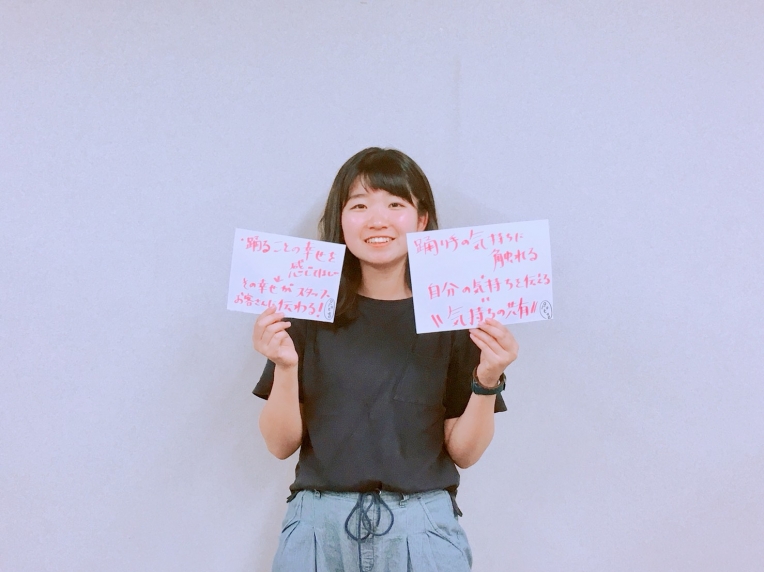 踊ることの幸せを
感じてほしい
その幸せがスタッフ、
お客さんに伝わる!
踊り手の気持ちに
触れる
自分の気持ちを伝える
"気持ちの共有"